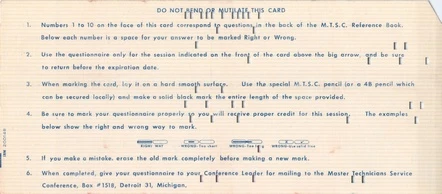 DO NOT BEND OR MUTILATE THIS CARD
1. Numbers 1 to 10 on the face of this card correspond to questions in the back of the M.T.S.C. Reference Book.
Below each number is a space for your answer to be marked Right or Wrong.
2. Use the questionnaire only for the session indicated on the front of the card above the big arrow, and be sure
to return before the expiration date.
3. When marking the card, lay it on a hard smooth surface. Use the special M.T.S.C. pencil (or a 4B pencil which
can be secured locally) and make a solid black mark the entire length of the space provided.
4. Be sure to mark your questionnaire properly so you will receive proper credit for this session. The examples
below show the right and wrong way to mark.
RIGHT WAY WRONG-Too short WRONG- WRONG-
5. If you make a mistake, erase the old mark completely before making a new mark.
6. When completed, give your questionnaire to your Conference Leader for mailing to the Master Technicians Service
Conference, Box #1518, Detroit 31, Michigan.
IBM